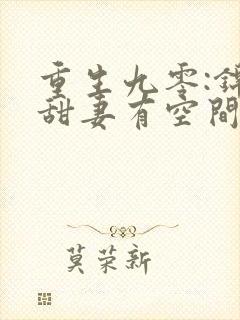 重生九零:錦
甜妻有空間
莫荣新